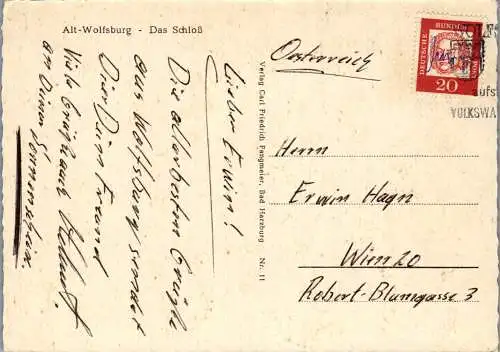 Alt-Wolfsburg - Das Schloß
Lieber Erwin!
Die allerbesten Grüße
aus Wolfsburg sendet
Dir Dein Freund
Helmut.
Viele Grüße auch
an Deinen
Verlag Carl Friedrich Fangmeier, Bad Harzburg Nr. 11
Österreich
DEUTSCHE BUNDESPOST
20
aufs
VOLKSWA
Herrn
Erwin Hagn
Wien 20
Robert-Blumgasse 3